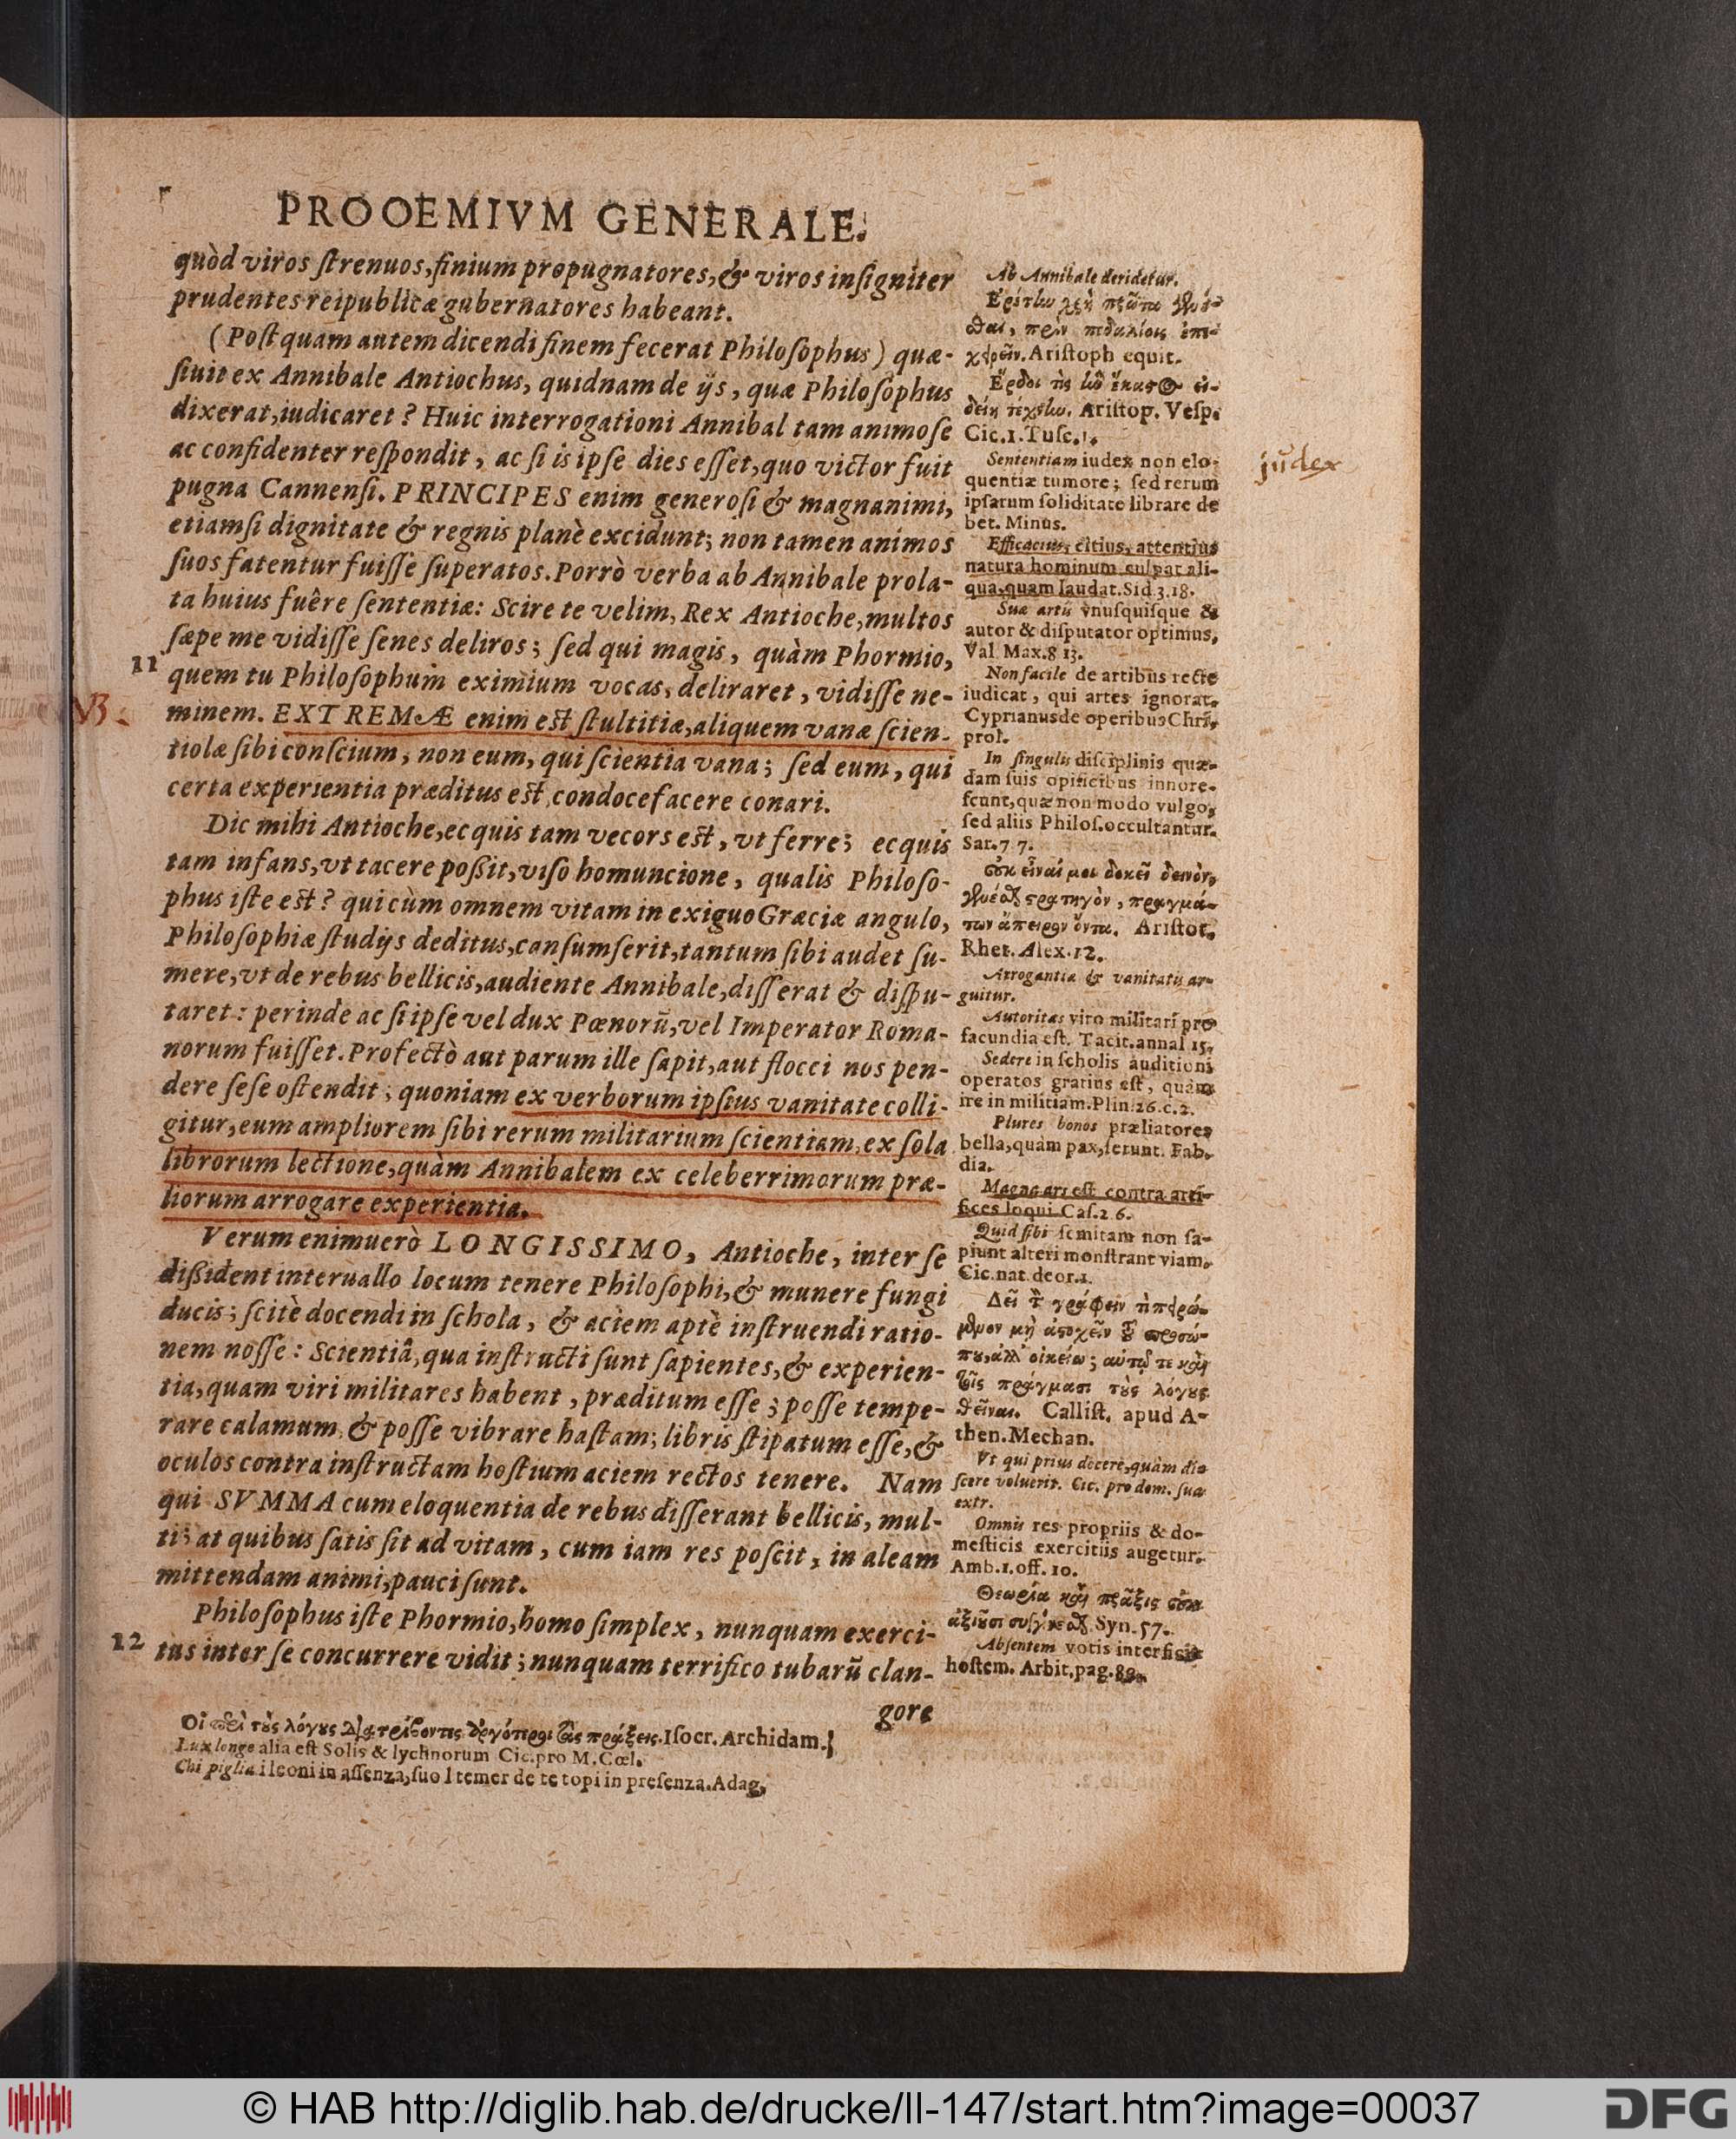 PROOEMIVM GENERALE.
quòd viros ſtrenuos, finium propugnatores, & viros inſigniter
prudentes reipublicæ gubernatores habeant.
(Poſtquam autem dicendi finem fecerat Philoſophus) quæ-
ſiuit ex Annibale Antiochus, quidnam de ijs, quæ Philoſophus
dixerat, iudicaret? Huic interrogationi Annibal tam animoſe
ac confidenter reſpondit, ac ſi is ipſe dies eſſet, quo victor fuit
pugna Cannenſi. PRINCIPES enim generoſi & magnanimi,
etiamſi dignitate & regnis planè excidunt; non tamen animos
ſuos fatentur fuiſſe ſuperatos. Porrò verba ab Annibale prola-
ta huius fuêre ſententiæ: Scire te velim, Rex Antioche, multos
ſæpe me vidiſſe ſenes deliros; ſed qui magis, quàm Phormio,
11
quem tu Philoſophum eximium vocas, deliraret, vidiſſe ne-
NB.
minem. EXTREMÆ enim eſt ſtultitiæ, aliquem vanæ ſcien-
tiolæ ſibi conſcium, non eum, qui ſcientia vana; ſed eum, qui
certa experientia præditus eſt, condocefacere conari.
Dic mihi Antioche, ecquis tam vecors eſt, vt ferre; ecquis
tam infans, vt tacere poßit, viſo homuncione, qualis Philoſo-
phus iſte eſt? qui cùm omnem vitam in exiguo Græciæ angulo,
Philoſophiæ ſtudijs deditus, conſumſerit, tantum ſibi audet ſu-
mere, vt de rebus bellicis, audiente Annibale, diſſerat & diſpu-
taret: perinde ac ſi ipſe vel dux Pœnorū, vel Imperator Roma-
norum fuiſſet. Profectò aut parum ille ſapit, aut flocci nos pen-
dere ſeſe oſtendit; quoniam ex verborum ipſius vanitate colli-
gitur, eum ampliorem ſibi rerum militarium ſcientiam, ex ſola
librorum lectione, quàm Annibalem ex celeberrimorum præ-
liorum arrogare experientia.
Verum enimuerò LONGISSIMO, Antioche, inter ſe
dißident interuallo locum tenere Philoſophi, & munere fungi
ducis; ſcitè docendi in ſchola, & aciem aptè inſtruendi ratio-
nem noſſe: Scientiâ, qua inſtructi ſunt ſapientes, & experien-
tia, quam viri militares habent, præditum eſſe; poſſe tempe-
rare calamum, & poſſe vibrare haſtam; libris ſtipatum eſſe, &
oculos contra inſtructam hoſtium aciem rectos tenere. Nam
qui SVMMA cum eloquentia de rebus diſſerant bellicis, mul-
ti; at quibus ſatis ſit ad vitam, cum iam res poſcit, in aleam
mittendam animi, pauci ſunt.
Philoſophus iſte Phormio, homo ſimplex, nunquam exerci-
12
tus inter ſe concurrere vidit; nunquam terrifico tubarū clan-
gore
Ab Annibale deridetur.
Aristoph equit.
Ariſtop. Veſp.
Cic.1.Tuſc.
Sententiam iudex non elo-
quentiæ tumore; ſed rerum
ipſarum ſoliditate librare de
bet. Minus.
judex
Efficacius, citius, attentius
natura hominum culpat ali-
qua, quam laudat. Sid 3.18.
Suæ artis vnuſquiſque &
autor & diſputator optimus,
Val. Max.8 13.
Non facile de artibus recte
iudicat, qui artes ignorat.
Cyprianus de operibus Chri,
prol.
In ſingulis diſciplinis quæ-
dam ſuis opificibus innote-
ſcunt, quæ non modo vulgo,
ſed aliis Philoſ. occultantur.
Sar.7 7.
Ariſtot.
Rhet. Alex. 12.
Arrogantia & vanitatis ar-
guitur.
Autoritas viro militari pro
facundia eſt. Tacit. annal 15.
Sedere in ſcholis auditioni
operatos gratius eſt, quàm
ire in militiam. Plin. 26.c.2.
Plures bonos præliatores
bella, quàm pax, ferunt. Fab.
dia.
Magna ars eſt contra arti-
fices loqui. Caſ.2 6.
Quid ſibi ſemitam non ſa-
piunt alteri monſtrant viam.
Cic. nat. deor.1.
Δεῖ γράφειν
Calliſt. apud A-
then. Mechan.
Vt qui prius docere, quàm di-
ſcere voluerit. Cic. pro dom. ſua
extr.
Omnis res propriis & do-
meſticis exercitiis augetur.
Amb.1.off. 10.
Θεωρία καὶ πρᾶξις
Syn. 57.
Abſentem votis interficit
hoſtem. Arbit. pag. 89.
Οἱ περὶ τοὺς λόγους διατρίβοντες ἀργότεροι πρὸς τὰς πράξεις. Iſocr. Archidam.
Lux longe alia eſt Solis & lychnorum Cic. pro M. Cœl.
Chi piglia i leoni in aſſenza, ſuol temer de te topi in preſenza. Adag.
© HAB http://diglib.hab.de/drucke/ll-147/start.htm?image=00037
DFG